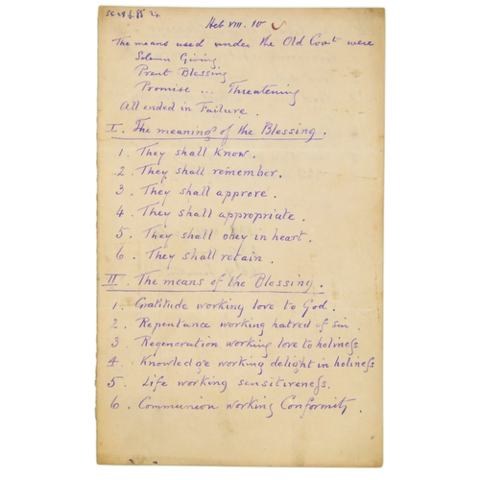 Heb VIII. 10
The means used under the Old Covt were
Solemn Giving
Prest Blessing
Promise ... Threatening
All ended in Failure.
I. The meaning of the Blessing.
1. They shall know.
2. They shall remember.
3. They shall approve.
4. They shall appropriate.
5. They shall obey in heart.
6. They shall retain.
II. The means of the Blessing.
1. Gratitude working love to God.
2. Repentance working hatred of sin.
3. Regeneration working love to holiness
4. Knowledge working delight in holiness
5. Life working sensitiveness.
6. Communion working Conformity.